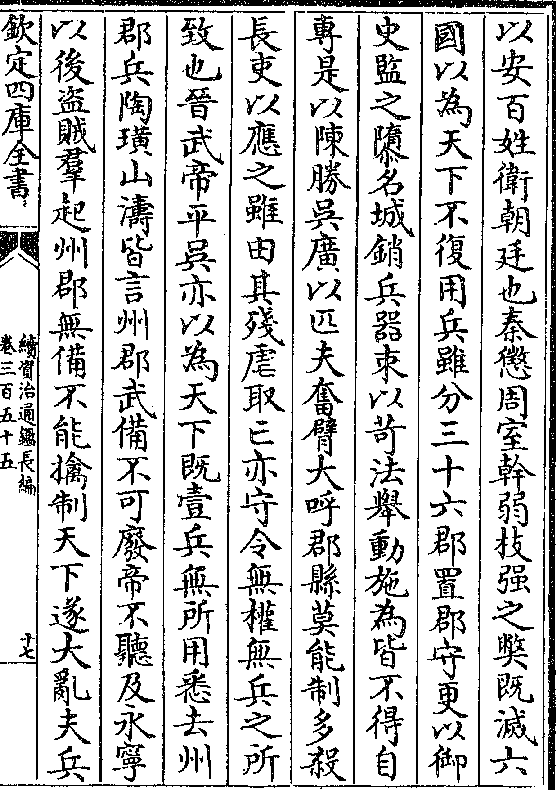 以安百姓衛朝廷也秦懲周室幹弱枝强之獘既滅六
國以為天下不復用兵雖分三十六郡置郡守更以御
史監之隳名城銷兵器束以苛法舉動施為皆不得自
專是以陳勝吳廣以匹夫奮臂大呼郡縣莫能制多殺
長吏以應之雖由其殘虐取亡亦守令無權無兵之所
致也晉武帝平吳亦以為天下既壹兵無所用悉去州
郡兵陶璜山濤皆言州郡武備不可廢帝不聽及永寧
以後盜賊羣起州郡無備不能擒制天下遂大亂夫兵
欽定四庫全書
續資治通鑑長編
卷三百五十五
十七